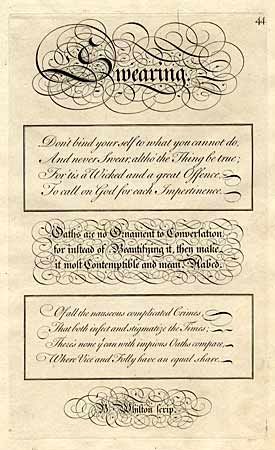 44
Swearing.
Don't bind yourself to what you cannot do,
And never Swear, altho' the Thing be true;
For 'tis a Wicked and a great Offence,
To call on God for each Impertinence.
Oaths are no Ornament to Conversation
for instead of Beautifying it, they make
it most Contemptible and mean.
Of all the nauseous complicated Crimes
That both infect and stigmatize the Times;
There's none yt can with impious Oaths compare,
Where Vice and Folly have an equal share.
scrip.